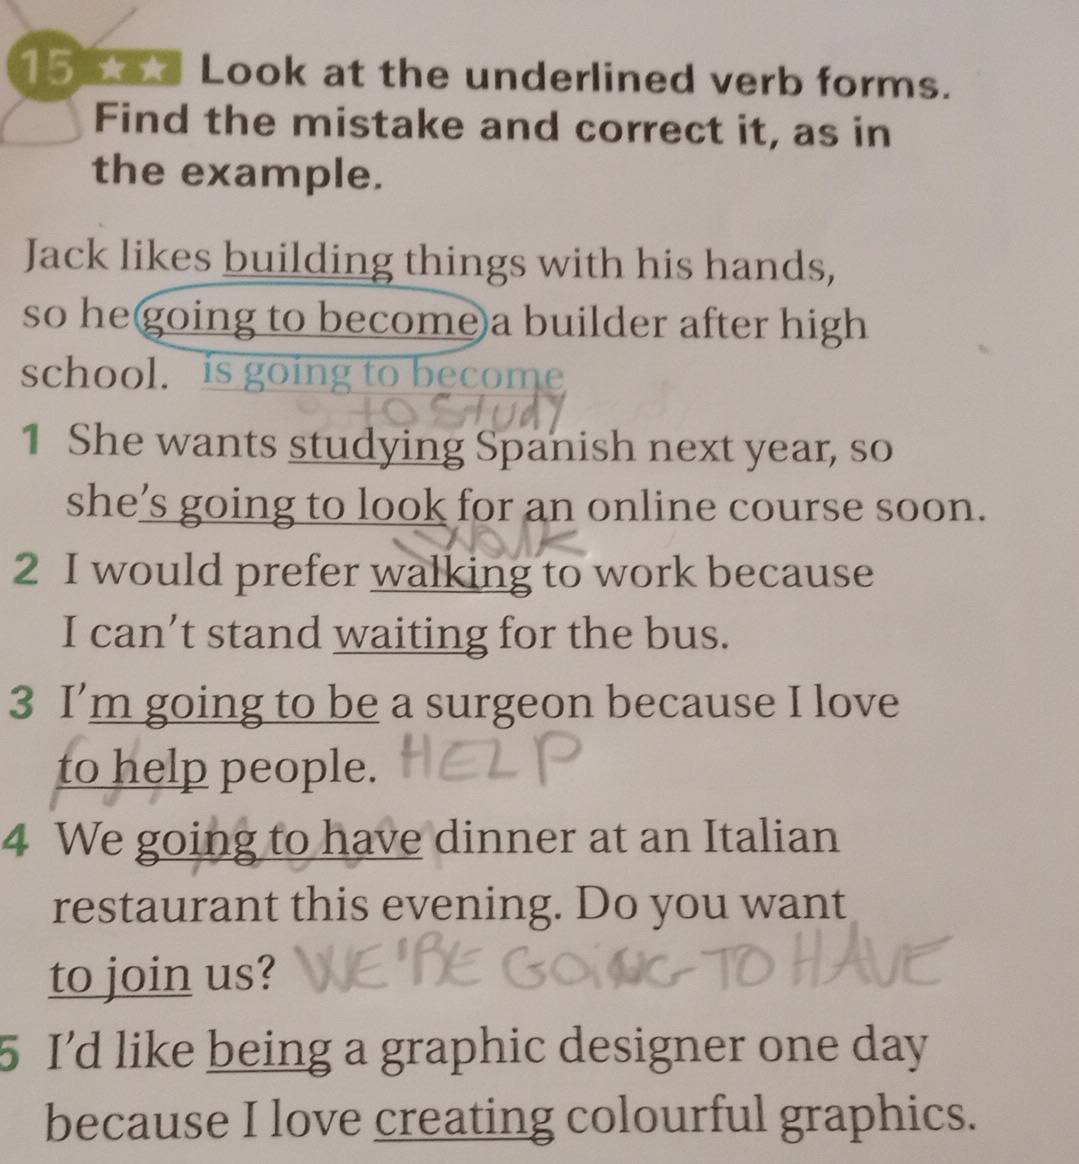 15 ★★ Look at the underlined verb forms.
Find the mistake and correct it, as in
the example.
Jack likes building things with his hands,
so he going to become a builder after high
school. is going to become
to study
1 She wants studying Spanish next year, so
she's going to look for an online course soon.
walk
2 I would prefer walking to work because
I can't stand waiting for the bus.
3 I'm going to be a surgeon because I love
to help people. HELP
4 We going to have dinner at an Italian
restaurant this evening. Do you want
to join us? WE'RE GOING TO HAVE
5 I'd like being a graphic designer one day
because I love creating colourful graphics.